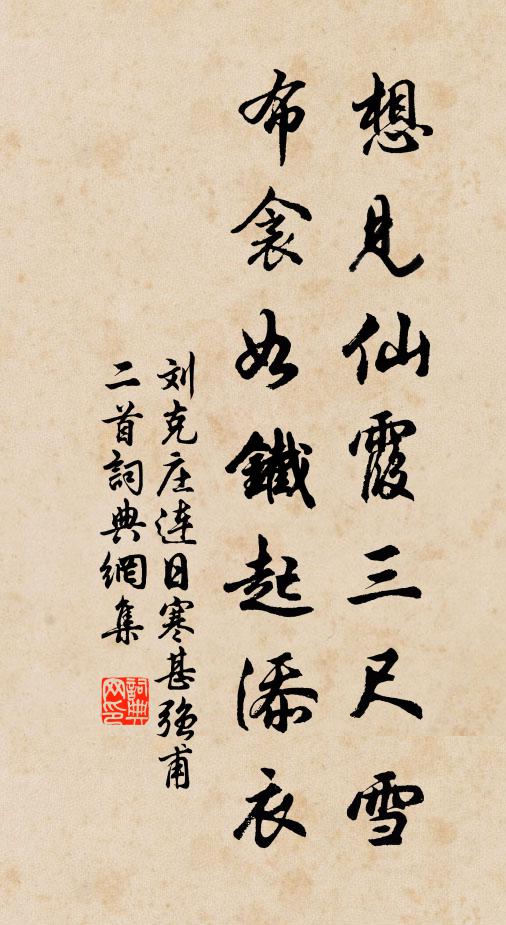 想見仙霞三尺雪
布衾如鐵起添衣
刘克庄連日寒甚強甫
二首詞典網集
詞典
网印